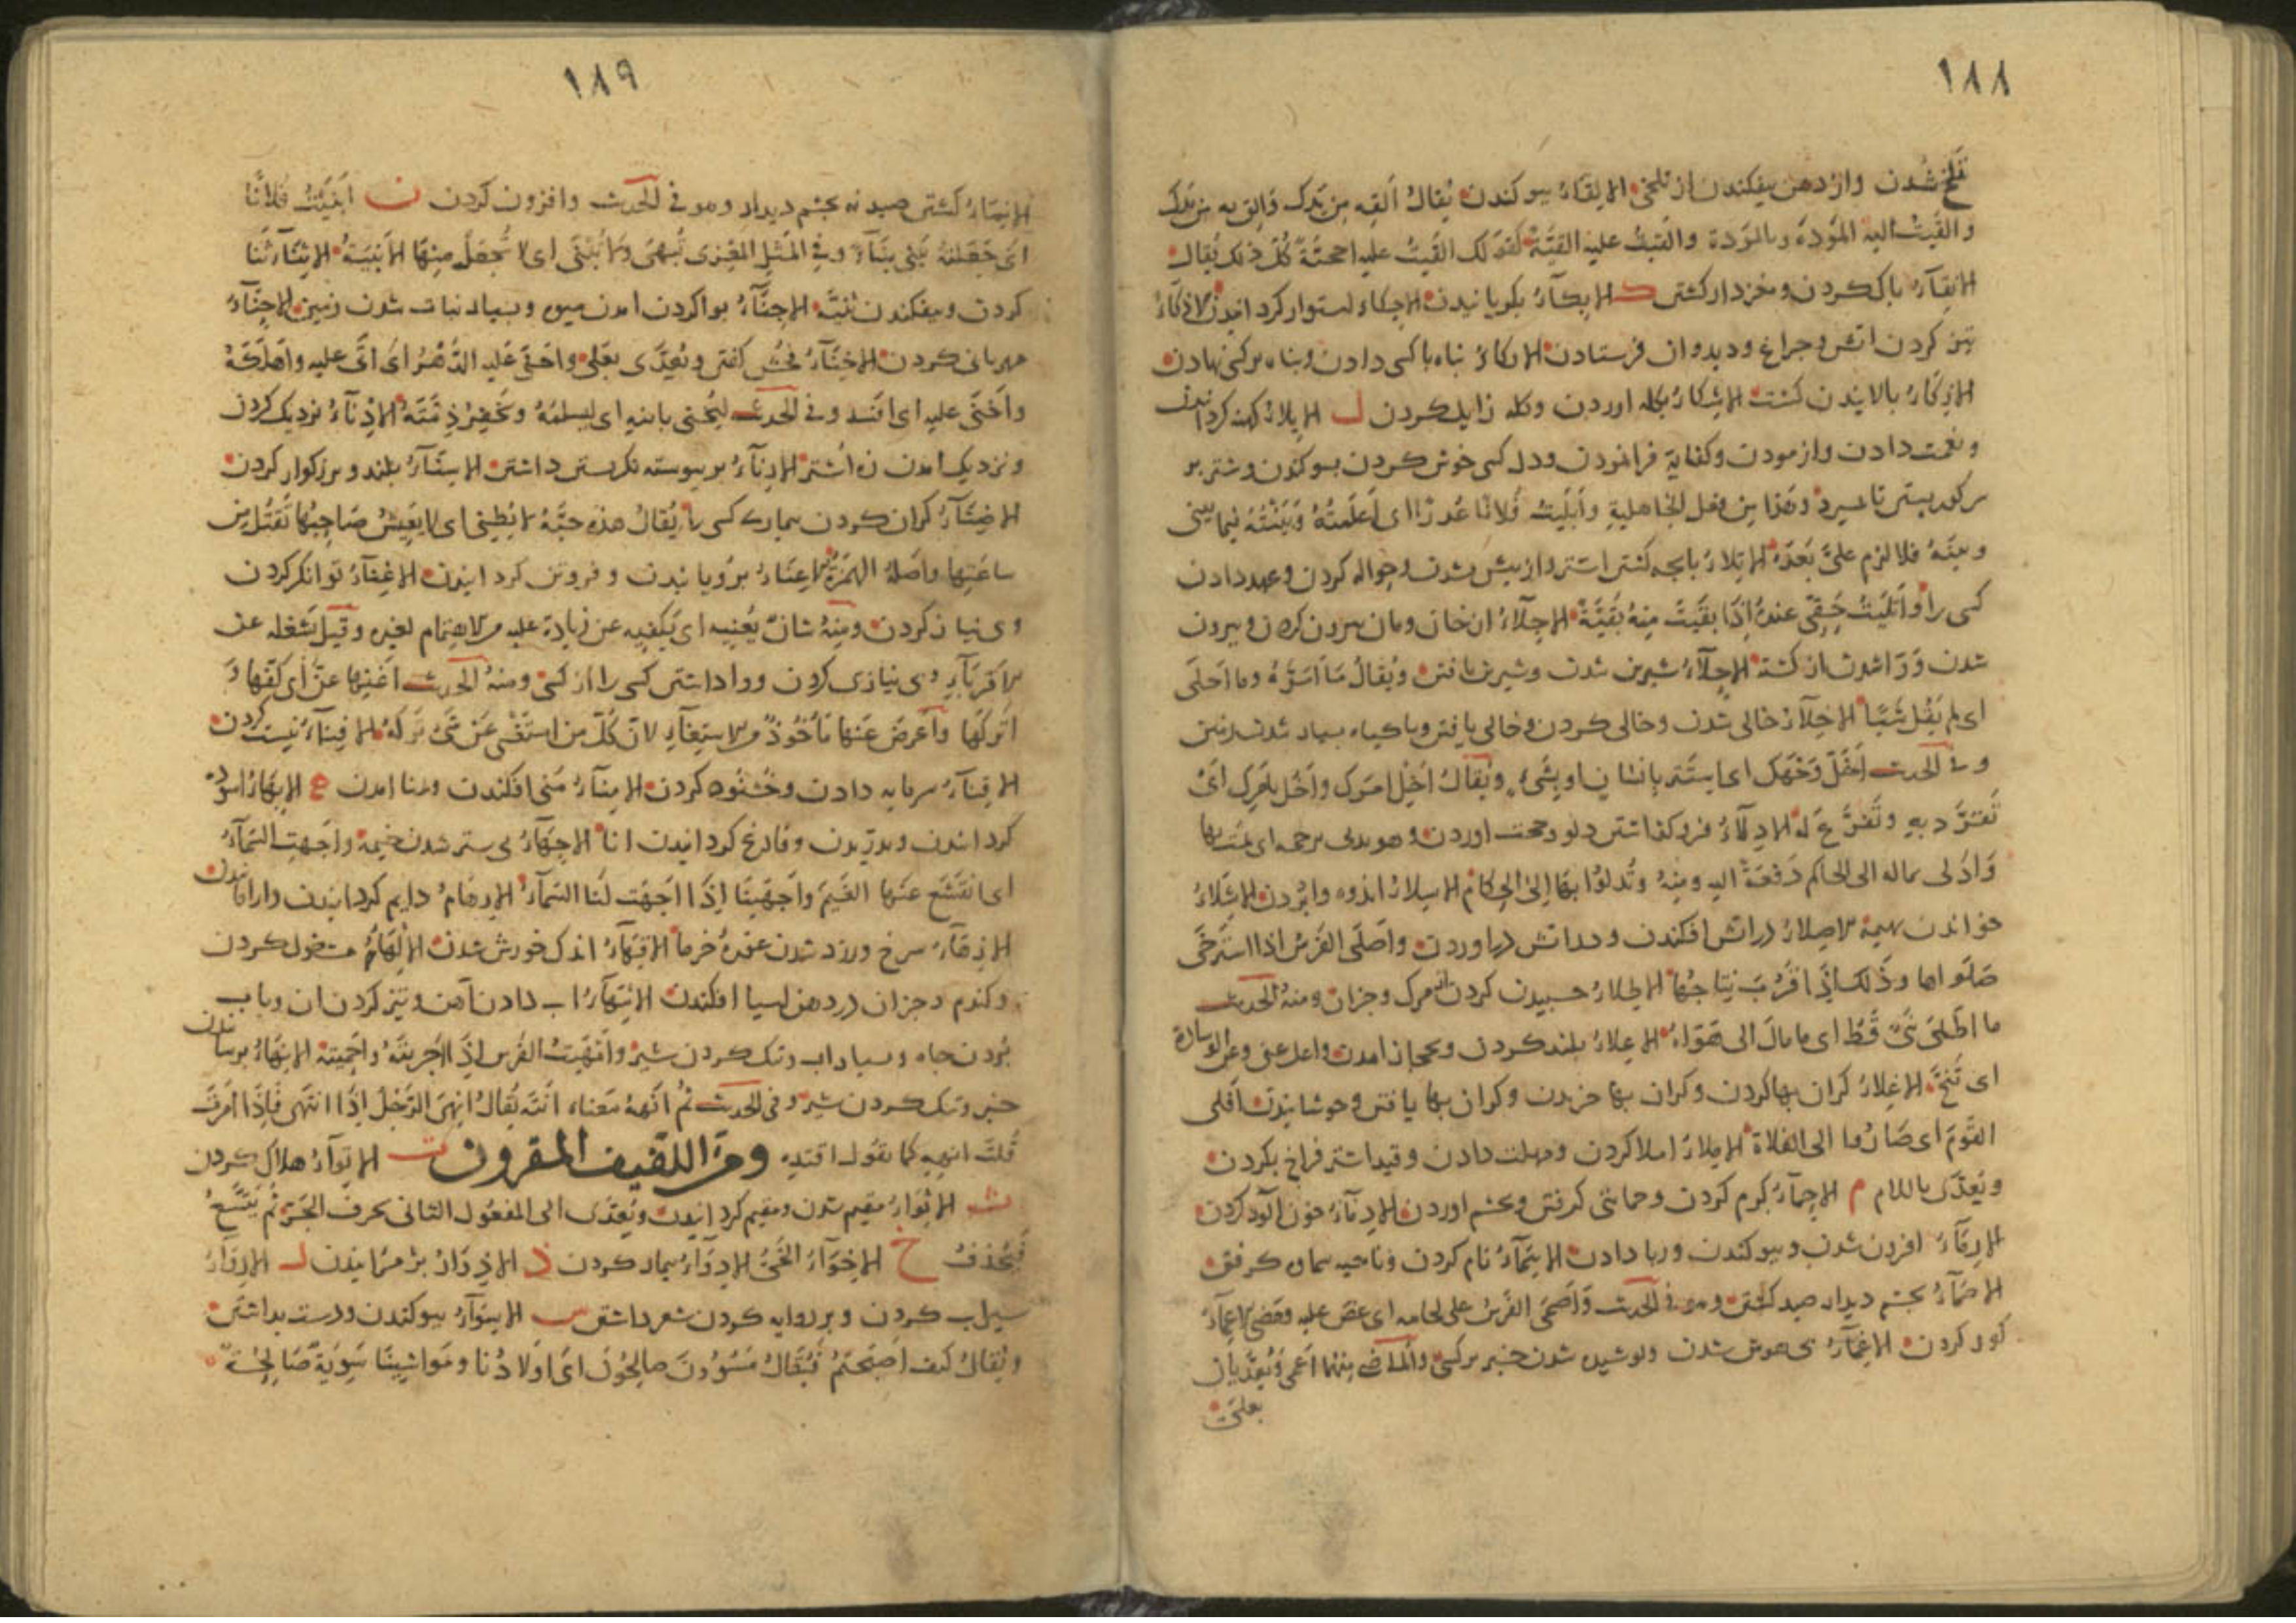 ١٨٨
تلخ شدن واز دهن بیفکندن از تلخی الإلقاء بیوکندن یقال ألقه من یدک وألق به من یدک
وألقیت الیه المودة وبالمودة وألقیت علیه ألقیة کقولک ألقیت علیه احجیة کل ذلک یقال
الإنقاء پاک کردن ومغزدار کشتن ک الإبکاء بکریانیدن الإحکاء استوار کردانیدن الإذکاء
تیز کردن اتش وچراغ ودیدوان فرستادن الإرکاء پناه باکسی دادن وکناه بر کسی نهادن
الإزکاء بالانیدن کشت الإشکاء بکله اوردن وکله زایل کردن ل الإبلاء کهنه کردانیدن
ونعمت دادن وازمودن وکفایة فرانمودن ودل کسی خوش کردن بسوکند وشتر بر
سر کور بستن تا بمیرد وهذا من فعل الجاهلیة وأبلیت فلانا عذرا ای أعلمته وبینته فیما بینی
وبینه فلا لزم علی بعده الإتلاء بابچه کشتن اشتر واز پیش بشدن وحواله کردن وعهد دادن
کسی را وأتلیت حقی عنده إذا بقیت منه بقیة الإجلاء از خان ومان بیرون کردن وبیرون
شدن
شیرین شدن وشیرین یافتن ویقال ما أمره وما أحلی
ای لم یقل شیئا الإخلاء خالی شدن وخالی کردن وخالی یافتن وباکیاه بسیار شدن زمین
وفی الحدیث أخل وجهک ای استتر بإنسان او بشیء ویقال أخل امرک وأخل بامرک ای
تفرد به وتفرغ له الإدلاء فروکذاشتن دلو وحجت اوردن وهو یدلی برحمه ای یمت بها
وأدلی بماله الی الحاکم دفعه الیه ومنه وتدلوا بها إلی الحکام الإسلاء اندوه وابردن الإشلاء
خواندن بهیمة الإصلاء در اتش افکندن وبداتش دراوردن وأصلی الفرس اذا استرخی
صلواها وذلک إذا قرب نتاجها الإطلاء چسبیدن کردن از مرک وجزان ومنه الحدیث
ما أطلی نبی قط ای ما مال الی هواه الإعلاء بلند کردن وبحجاز امدن واعل عنی وعن الوسادة
ای تنح الإغلاء کران بها کردن وکران بها خریدن وکران بها یافتن وجوشانیدن أفلی
القوم ای صاروا الی الفلاة الإملاء املا کردن ومهلت دادن وقید اشتر فراخ بکردن
ویعدی باللام م الإحماء کرم کردن وحمائی کرفتن وبخشم اوردن الإدماء خون آلود کردن
الإرماء افزون شدن وبیوکندن وربا دادن الإسماء نام کردن وناحیه سماوه کرفتن
الإصماء بچشم دیدار صید کشتن ومر فی الحدیث وأصمی الفرس علی لجامه ای عض علیه ومضی الإعماء
کور کردن الإغماء بی هوش شدن وپوشیده شدن خبر بر کسی والماضی منهما أغمی ویعدیان
بعلی
١٨٩
الإنماء کشتن صید نه بچشم دیدار ومر فی الحدیث وافزون کردن ن أبنیت فلانا
ای جعلته یبنی بناء وفی المثل المعزی تبهی ولا تبنی ای لا تجعل منها الأبنیة الإثناء ثنا
کردن وبیفکندن ثنیة الإجناء بواکردن امدن میوه وبسیار نبات شدن زمین الإحناء
مهربانی کردن الإخناء فحش کفتن ویعدی بعلی وأخنی علیه الدهر ای أتی علیه وأهلکه
وأخنی علیه ای افسد وفی الحدیث لیخنی بابنه ای لیسلمه وتخفر ذمته الإدناء نزدیک کردن
ونزدیک امدن زه اشتر الإرناء بر پیوسته نکرستن داشتن الإسناء بلند وبزرکوار کردن
الإضناء کران کردن بیماری کسی را یقال هذه حیة لا تطنی ای لا یعیش صاحبها تقتل من
ساعتها وأصله الهمزة الإعناء برویانیدن وفروتن کردانیدن الإغناء توانکر کردن
وبی نیاز کردن ومنه شأن یغنیه ای یکفیه عن زیادة علیه والاهتمام لغیره وقیل یشغله عن
الأقرباء وبی نیازی کردن وواداشتن کسی را از کسی ومنه الحدیث أغنها عنی ای کفها و
اترکها وأعرض عنها مأخوذ من الاستغناء لأن کل من استغنی عن شیء ترکه الإفناء نیست کردن
الإقناء سرمایه دادن وخشنود کردن الإمناء منی افکندن وبمنا امدن ه الإبهاء
کردانیدن وبدریدن وفارغ کردانیدن انا الإجهاء بی ستر شدن خیمه وأجهت السماء
ای انقشع عنها الغیم وأجهینا إذا أجهت لنا السماء الإرهاء دایم کردانیدن وارامانیدن
الإزهاء سرخ وزرد شدن غوره خرما الإقهاء اندک خورش شدن الإلهاء مشغول کردن
وکندم وجزان در دهن اسیا افکندن الإمهاء اب دادن آهن وتیز کردن ان وباب
بردن چاه وبسیار اب وتنک کردن شیر وأمهیت الفرس إذا أجریته وأحمیته الإنهاء برسانیدن
خبر وتنک کردن شیر وفی الحدیث ثم أنهه معناه انته یقال انهی الرجل إذا انتهی فإذا أمرت
قلت انهه کما تقول اقتده ومن اللفیف المقرون ت الإتواء هلاک کردن
ث الإثواء مقیم شدن ومقیم کردانیدن ویعدی الی المفعول الثانی بحرف الجر ثم یتسع
فیحذف خ الإخواء الخی الإدواء بیمار کردن ذ الإذواء پژمرانیدن ر الإرواء
سیراب کردن وبر روایه کردن شعر داشتن س الإسواء بیوکندن ودرست بداشتن
ویقال کیف اصبحتم فیقال مسوون صالحون ای اولادنا ومواشینا سویة صالحة